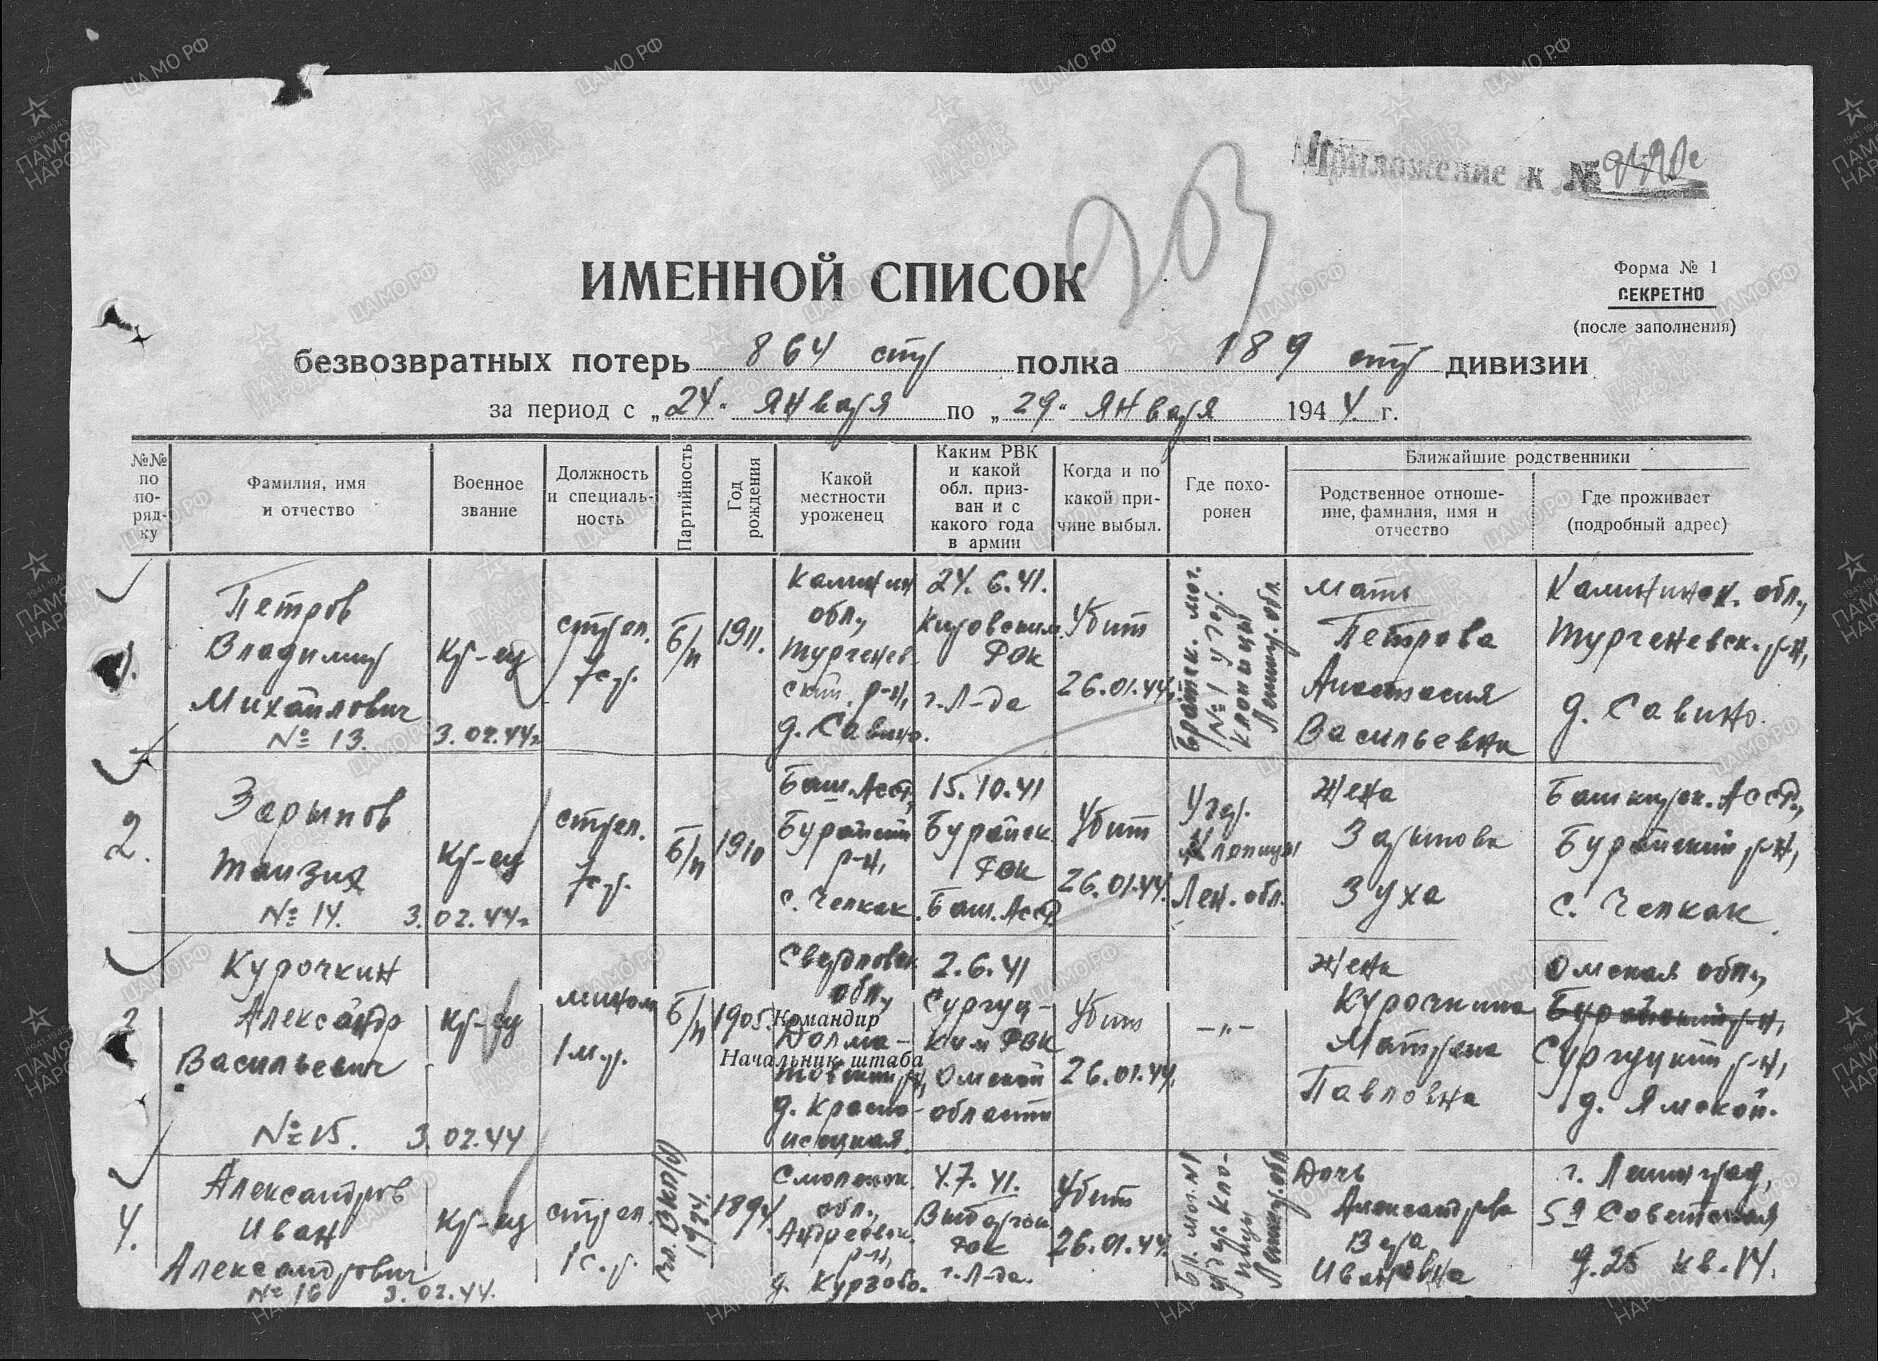 Приложение к №
203
ИМЕННОЙ СПИСОК
Форма № 1
СЕКРЕТНО
(после заполнения)
безвозвратных потерь 864 стр полка 189 стр дивизии
за период с „24" января по „29" января 1944 г.
№№ по по-ряд-ку
Фамилия, имя и отчество
Военное звание
Должность и специаль-ность
Партийность
Год рождения
Какой местности уроженец
Каким РВК и какой обл. приз-ван и с какого года в армии
Когда и по какой при-чине выбыл.
Где похо-ронен
Ближайшие родственники
Родственное отноше-ние, фамилия, имя и отчество
Где проживает (подробный адрес)
1.
Петров
Владимир
Михайлович
№ 13.
Кр-ец
3.02.44г
стрел.
7с.р.
б/п
1911.
Калинин
обл.,
Тургенев
ский р-н,
д. Савино.
24.6.41.
Кировским
РВК
г. Л-да
Убит
26.01.44
Братск. мог.
№ 1 у гор.
Клопицы
Ленингр. обл.
мать
Петрова
Анастасия
Васильевна
Калининск. обл.,
Тургеневск. р-н,
д. Савино.
2.
Зарыпов
№ 14.
Кр-ец
3.02.44г
стрел.
7с.р.
б/п
1910
Баш. Асср,
Бурайский
р-н,
с. Челкак.
15.10.41
Бурайск.
РВК
Баш. Асср
Убит
26.01.44.
Клопицы
Лен. обл.
жена
Зарыпова
Зуха
Башкирск. Асср.,
Бурайский р-н,
с. Челкак.
3
Курочкин
Александр
Васильевич
№ 15.
Кр-ец
3.02.44
мином
1м.р.
б/п
1905
Свердловск
обл.,
Долма-
товский р-н,
д. Красно-
исецкая.
Командир
Начальник штаба
2.6.41
Сургуц-
ким РВК
Омской
области
Убит
26.01.44.
–„–
жена
Курочкина
Матрена
Павловна
Омская обл.,
Бурайский р-н,
Сургуцкий р-н,
д. Ямской.
4.
Александров
Иван
Александрович
№ 16
Кр-ец
3.02.44.
стрел.
1с.р.
чл. ВКП(б)
1924.
1894.
Смоленск.
обл.,
Андреевск.
р-н,
д. Кургово.
4.7.41.
Выборгск
РВК
г. Л-да.
Убит
26.01.44.
Бр. мог. №1
у гор. Кло-
пицы
Ленингр. обл
Дочь
Александрова
Вера
Ивановна
г. Ленинград,
5я Советская
д. 25 кв. 14.
ПАМЯТЬ НАРОДА
1941-1945
ЦАМО РФ